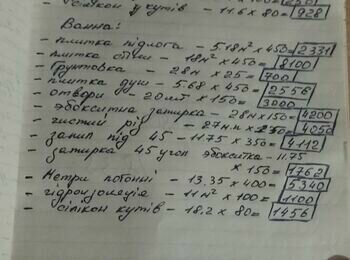 - Силікон у кутів - 11.6 x 80 = 928
Ванна:
- плитка підлога - 5.18 м² x 450 = 2331
- плитка стіни - 18 м² x 450 = 8100
- Грунтовка - 28 м x 25 = 700
- плитка душ - 5.68 x 450 = 2556
- отвори - 20 шт x 150 = 3000
- эбокситна затирка - 28 м x 150 = 4200
- чистий різ - 27 м п x 150 = 4050
- запил під 45 - 11.75 x 350 = 4112
- затирка 45 угол эбокситка - 11.75
x 150 = 1762
- Метри погонні - 13.35 x 400 = 5340
- гідроізоляція - 11 м² x 100 = 1100
- сілікон кутів - 18.2 x 80 = 1456